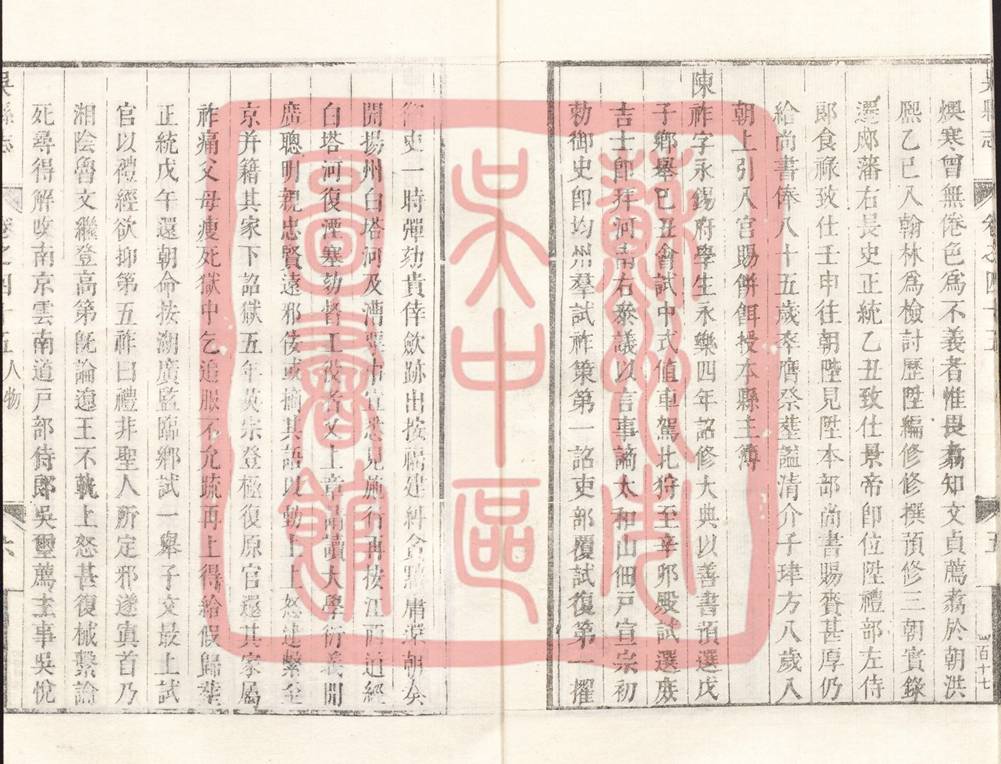 吳縣志 卷之四十五 五 百十七
煥寒曾無倦色爲不義者惟畏翥知文貞薦翥於朝洪
熙乙巳入翰林爲檢討歷陞編修修撰預修三朝實錄
選郕藩右長史正統乙丑致仕景帝卽位陞禮部左侍
郎食祿致仕壬申往朝陛見陞本部尚書賜賚甚厚仍
給尚書俸八十五歲卒膺祭塟謚清介子瑋方八歲入
朝上引入宮賜餅餌授本縣主簿
陳祚字永錫府學生永樂四年詔修大典以善書預選戊
子鄉舉巳丑會試中式值車駕北狩至辛卯殿試選庶
吉士卽拜河南右叅議以言事謫太和山佃戶宣宗初
勅御史卽均州羣試祚策第一詔吏部覆試復第一擢
御史一時彈劾貴倖歛跡出按福建糾貪黜庸還朝奏
開揚州白塔河及漕弊事宜悉見施行再按江西道經
白塔河復湮塞劾督工役者又上章請讀大學衍義開
廣聰明親忠賢遠邪佞或摘其語以動上上怒逮繫至
京并籍其家下詔獄五年英宗登極復原官還其家屬
祚痛父母瘦死獄中乞追服不允疏再上得給假歸塟
正統戊午還朝命按湖廣監臨鄉試一舉子文最上試
官以禮經欲抑第五祚曰禮非聖人所定邪遂寘首乃
湘陰魯文繼登高第旣論遼王不軌上怒甚復械繫論
死尋得解改南京雲南道戸部侍郎吳璽薦主事吳悅
吳縣志 卷之四十五 人物 六
蘇州市
吳中區
圖書館